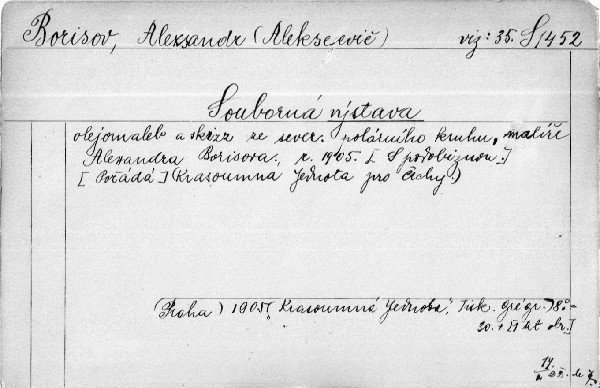 Borisov, Alexandr (Aleksěevič) viz: 35. S 1452
Souborná výstava
olejomaleb a skizz ze sever. polárního kruhu, malíře
Alexandra Borisova, r. 1905. [S podobiznou.]
[Pořádá] (Krasoumná Jednota pro Čechy.)
(Praha) 1905, "Krasoumná Jednota", Tisk. Grégr. 8°-
20. + 21